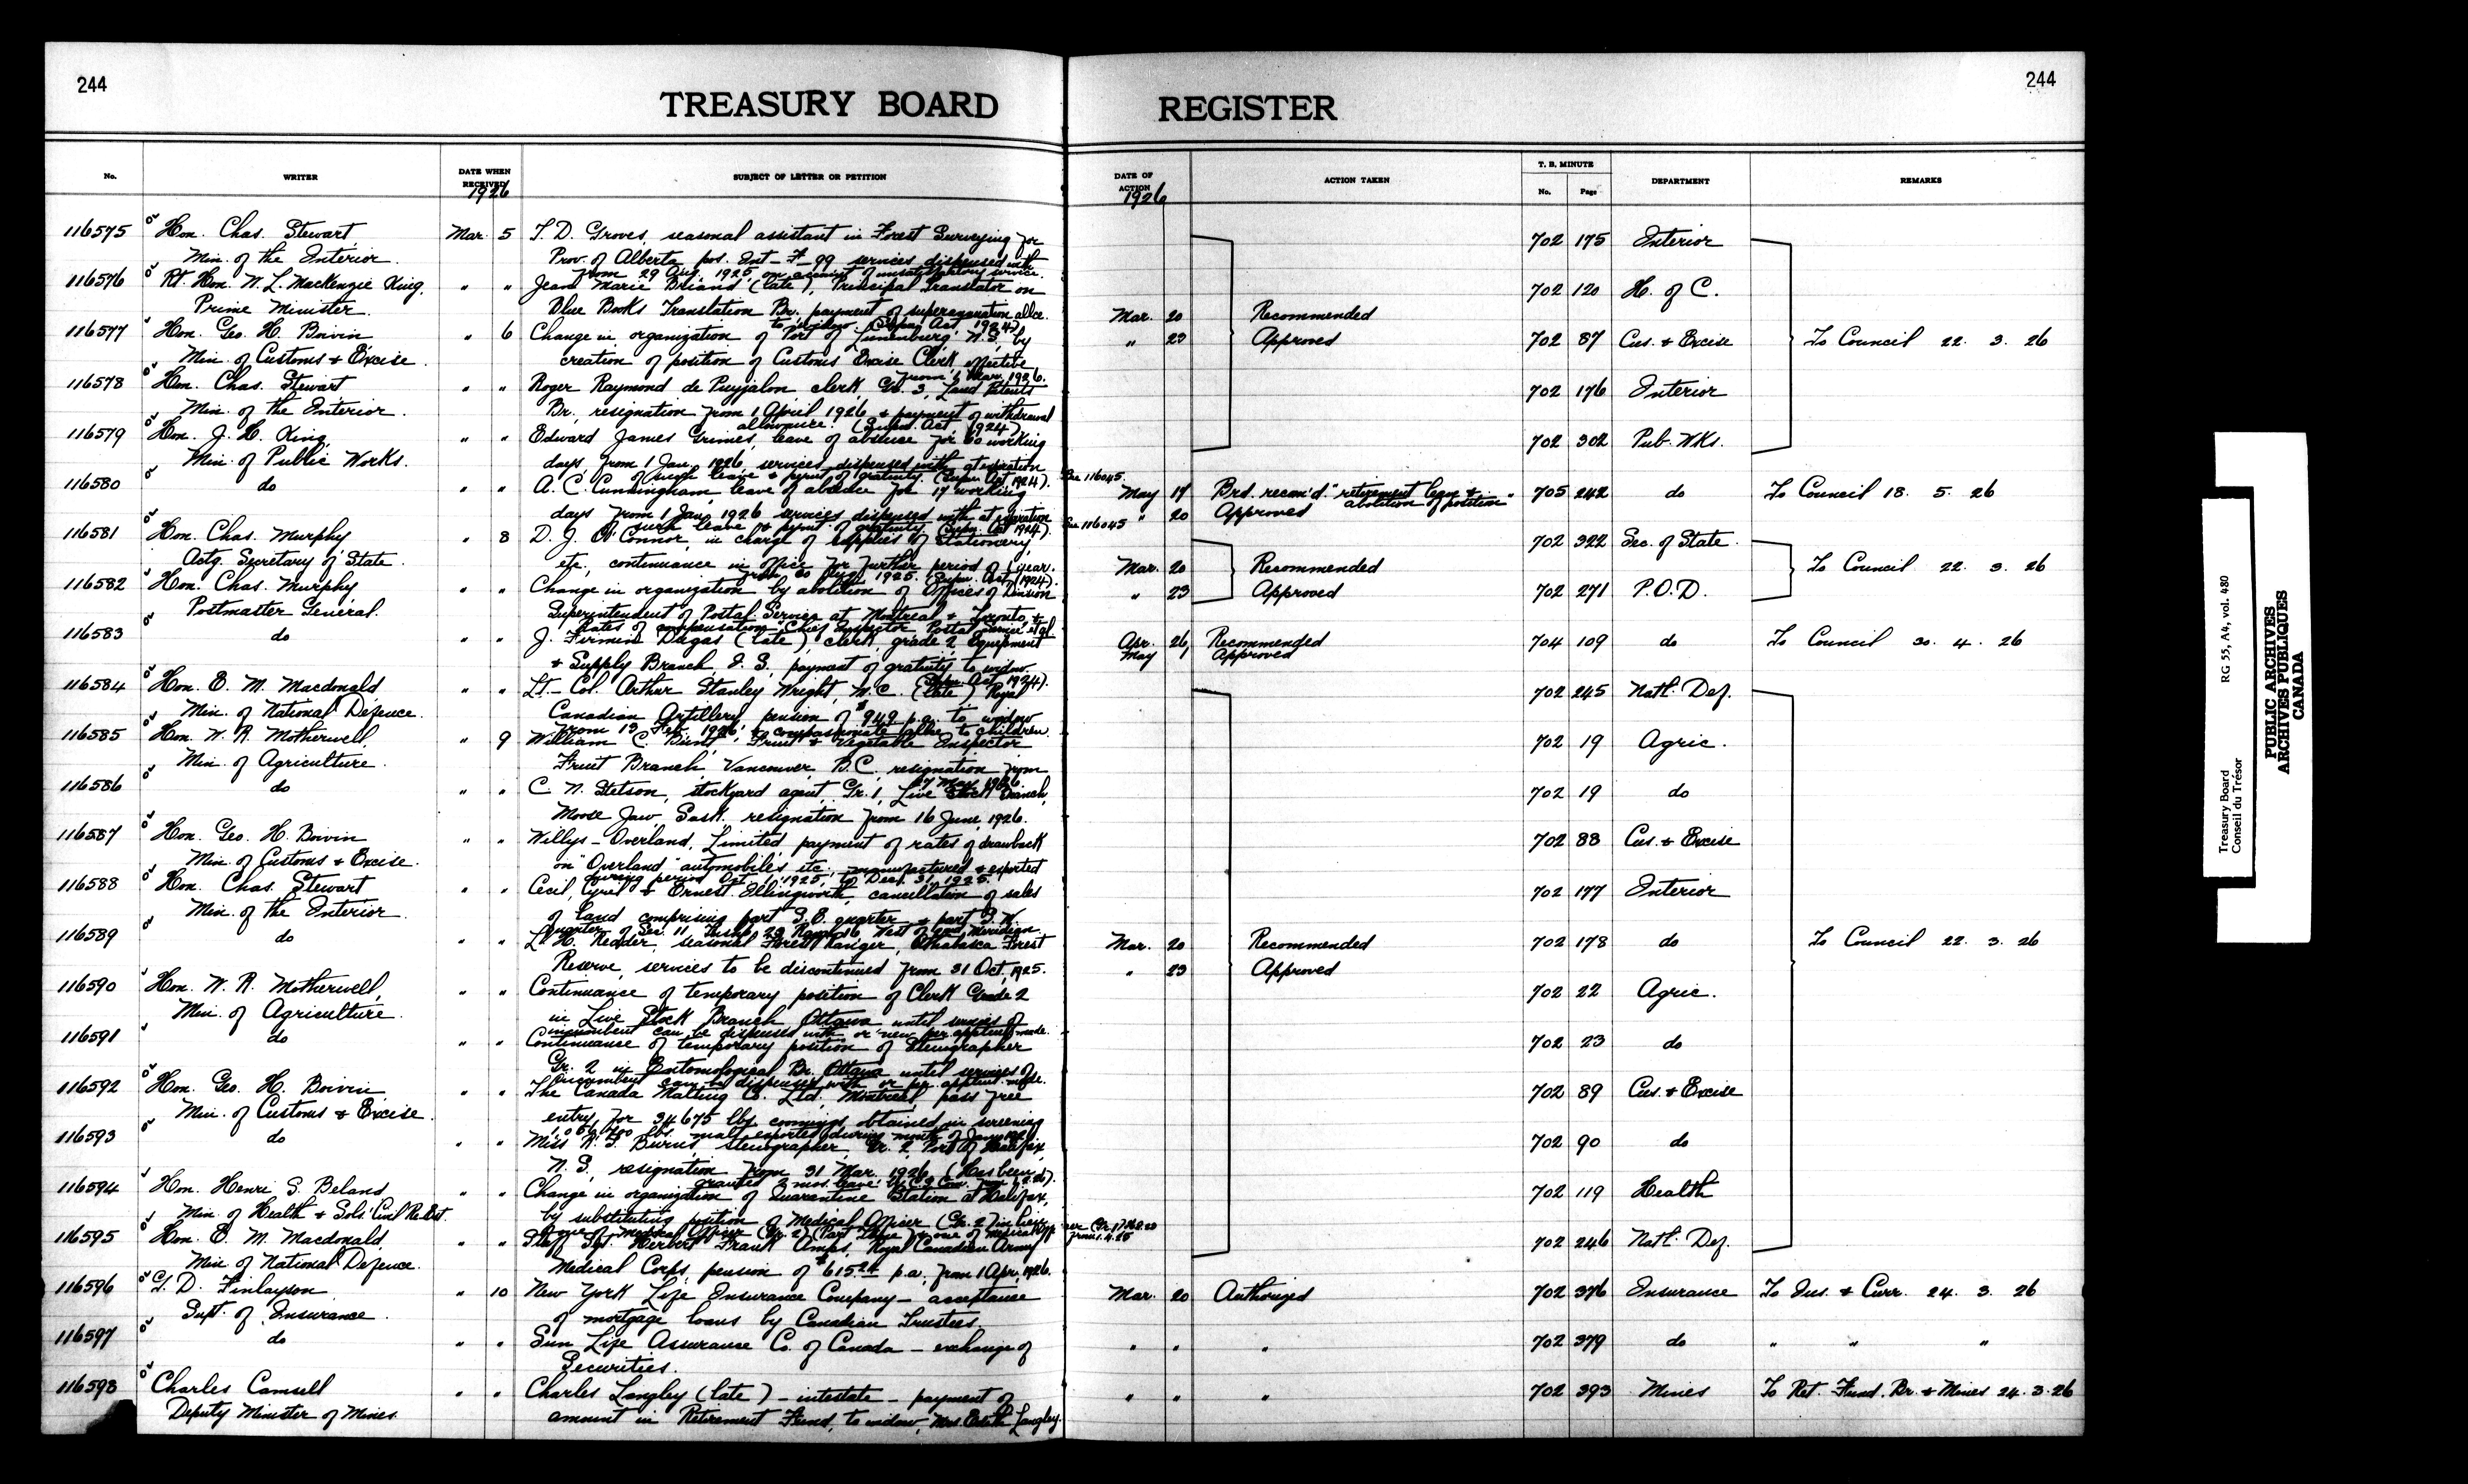 244
244
TREASURY BOARD REGISTER
No. WRITER DATE WHEN RECEIVED SUBJECT OF LETTER OR PETITION DATE OF ACTION ACTION TAKEN T. B. MINUTE No. Page DEPARTMENT REMARKS
1926 1926
116575 Hon. Chas. Stewart Mar. 5 T. D. Groves, seasonal assistant in Forest Surveying for 702 175 Interior
Min. of the Interior. Prov. of Alberta, pos. Int-F-99 services dispensed with
from 29 Aug. 1925, on account of unsatisfactory service.
116576 Rt. Hon. W. L. MacKenzie King, " " Jean Marie Briand (late), Principal Translator on 702 120 H. of C.
Prime Minister. Blue Books Translation Br. payment of superannuation allce. Mar. 20 Recommended
to widow. (Supn. Act, 1924)
116577 Hon. Geo. H. Boivin " 6 Change in organization of Port of Lunenburg N.S. by " 23 Approved 702 87 Cus. & Excise To Council 22. 3. 26
Min. of Customs & Excise. creation of position of Customs Excise Clerk effective
from 1 Mar. 1926.
116578 Hon. Chas. Stewart " " Roger Raymond de Puyjalon clerk Gr. 3, Land Patents 702 176 Interior
Min. of the Interior. Br. resignation from 1 April 1926 & payment of withdrawal
allowance. (Supn. Act 1924)
116579 Hon. J. H. King " " Edward James Grimes, leave of absence for 60 working 702 302 Pub. Wks.
Min. of Public Works. days, from 1 Jan. 1926, services dispensed with at expiration
of such leave & paymt. of gratuity. (Supn. Act 1924). See 116045.
116580 do " " A. C. Cunningham, leave of absence for 17 working May 17 Brd. recom'd. "retirement leave & abolition of position" 705 242 do To Council 18. 5. 26
days from 1 Jan. 1926 services dispensed with at expiration " 20 Approved
of such leave & paymt. of gratuity (Supn. Act 1924). See 116045
116581 Hon. Chas. Murphy " 8 D. J. O'Connor, in charge of supplies of Stationery, 702 322 Sec. of State.
Actg. Secretary of State etc., continuance in office for further period of 1 year. Mar. 20 Recommended To Council 22. 3. 26
1925. (Supn. Act, 1924).
116582 Hon. Chas. Murphy " " Change in organization by abolition of Offices of Division " 23 Approved 702 271 P.O.D.
Postmaster General. Superintendent of Postal Service at Montreal & Toronto, &
rates of compensation Chief Inspector Postal Service et al
116583 do " " J. Firmin Dugas (late), clerk, grade 2, Equipment Apr. 26 Recommended 704 109 do To Council 30. 4. 26
May Approved
& Supply Branch I. S. payment of gratuity to widow.
(Supn. Act, 1924).
116584 Hon. E. M. Macdonald " " Lt-Col. Arthur Stanley Wright, M.C. (late) Royal 702 245 Natl. Def.
Min. of National Defence. Canadian Artillery pension of $949 p.a. to widow
from 13 Feb. 1926, & compassionate allce to children.
116585 Hon. W. R. Motherwell " 9 William C. Fruit & Vegetable Inspector 702 19 Agric.
Min. of Agriculture. Fruit Branch, Vancouver B.C., resignation from
May 1926
116586 do " " C. N. Stetson, stockyard agent, Gr. 1, Live Stock Branch, 702 19 do
Moose Jaw, Sask. resignation from 16 June, 1926.
116587 Hon. Geo. H. Boivin " " Willys-Overland, Limited payment of rates of drawback 702 88 Cus. & Excise
Min. of Customs & Excise. on "Overland" automobiles etc., manufactured & exported
during period Oct. 1, 1925, to Dec. 31, 1925.
116588 Hon. Chas. Stewart " " Cecil, Cyril & Ernest Illingworth, cancellation of sales 702 177 Interior
Min. of the Interior. of land comprising part S.E. quarter & part S.W.
quarter of Sec. 11 Range 16 West of 2nd Meridian.
116589 do " " L. H. Reader, seasonal Forest Ranger, Athabasca Forest Mar. 20 Recommended 702 178 do To Council 22. 3. 26
Reserve, services to be discontinued from 31 Oct. 1925. " 23 Approved
116590 Hon. W. R. Motherwell, " " Continuance of temporary position of Clerk Grade 2 702 22 Agric.
Min. of Agriculture. in Live Stock Branch Ottawa until services of
incumbent can be dispensed with or new per. apptmt. made.
116591 do " " Continuance of temporary position of Stenographer 702 23 do
Gr. 2 in Entomological Br. Ottawa until services of
incumbent can be dispensed with or per. apptmt. made.
116592 Hon. Geo. H. Boivin " " The Canada Malting Co. Ltd. Montreal, pass free 702 89 Cus. & Excise
Min. of Customs & Excise. entry for 34675 lbs. obtained in screening
lbs. malt exported during month of Jan.
116593 do " " Miss Burns, stenographer, Gr. 2, Port of Halifax, 702 90 do
N.S., resignation from 31 Mar. 1926 (Has been
granted 2 mos. leave
116594 Hon. Henri S. Beland " " Change in organization of Quarantine Station at Halifax, 702 119 Health
Min. of Health & Sols. Civil Re-Est. by substituting position of Medical Officer (Gr. 2) in lieu
116595 Hon. E. M. Macdonald " " Staff Sgt. Herbert Frank Amps, Royal Canadian Army 702 246 Natl. Def.
Min. of National Defence. Medical Corps, pension of $615.24 p.a. from 1 Apr. 1926.
116596 G. D. Finlayson " 10 New York Life Insurance Company - acceptance Mar. 20 Authorized 702 376 Insurance To Ins. & Curr. 24. 3. 26
Supt. of Insurance. of mortgage loans by Canadian Trustees.
116597 do " " Sun Life Assurance Co. of Canada - exchange of " " " 702 379 do " " "
Securities.
116598 Charles Camsell " " Charles Langley (late) - intestate - payment of " " " 702 393 Mines To Ret. Fund. Br. & Mines 24. 3. 26
Deputy Minister of Mines. amount in Retirement Fund, to widow, Mrs. Edith Langley.
Treasury Board RG 55, A4, vol. 480
Conseil du Trésor
PUBLIC ARCHIVES
ARCHIVES PUBLIQUES
CANADA